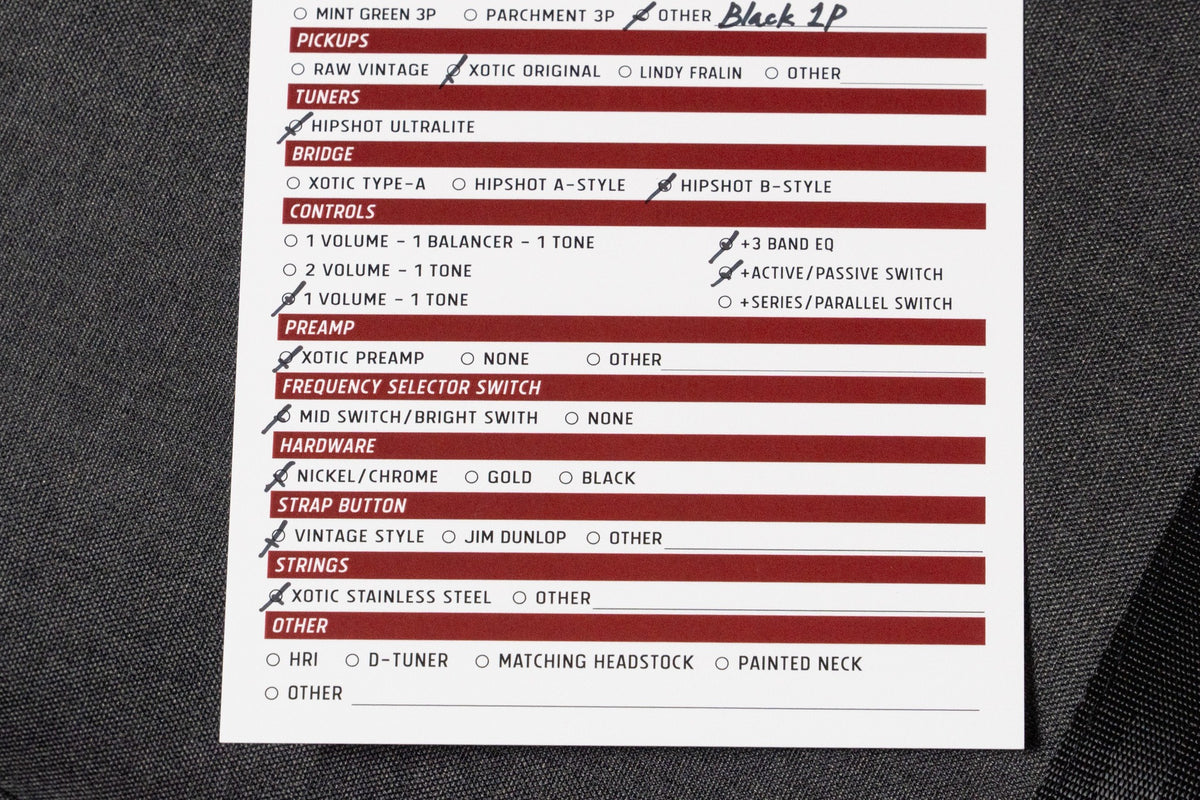 MINT GREEN 3P PARCHMENT 3P OTHER Black 1P
PICKUPS
RAW VINTAGE XOTIC ORIGINAL LINDY FRALIN OTHER
TUNERS
HIPSHOT ULTRALITE
BRIDGE
XOTIC TYPE-A HIPSHOT A-STYLE HIPSHOT B-STYLE
CONTROLS
1 VOLUME - 1 BALANCER - 1 TONE +3 BAND EQ
2 VOLUME - 1 TONE +ACTIVE/PASSIVE SWITCH
1 VOLUME - 1 TONE +SERIES/PARALLEL SWITCH
PREAMP
XOTIC PREAMP NONE OTHER
FREQUENCY SELECTOR SWITCH
MID SWITCH/BRIGHT SWITH NONE
HARDWARE
NICKEL/CHROME GOLD BLACK
STRAP BUTTON
VINTAGE STYLE JIM DUNLOP OTHER
STRINGS
XOTIC STAINLESS STEEL OTHER
OTHER
HRI D-TUNER MATCHING HEADSTOCK PAINTED NECK
OTHER